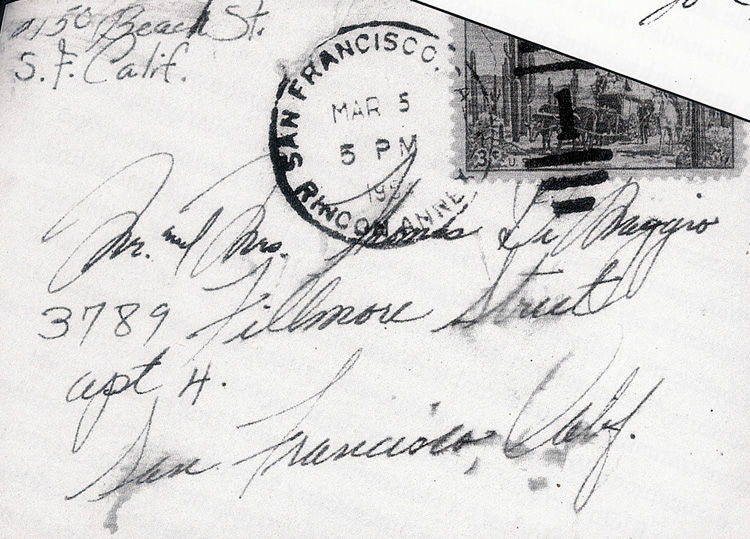 2150 Beach St.
S. F. Calif.
SAN FRANCISCO,
MAR 5
5 PM
RINCON ANNEX
3¢
Mr. and Mrs. Thomas Di Maggio
3789 Fillmore Street
apt 4.
San Francisco, Calif.